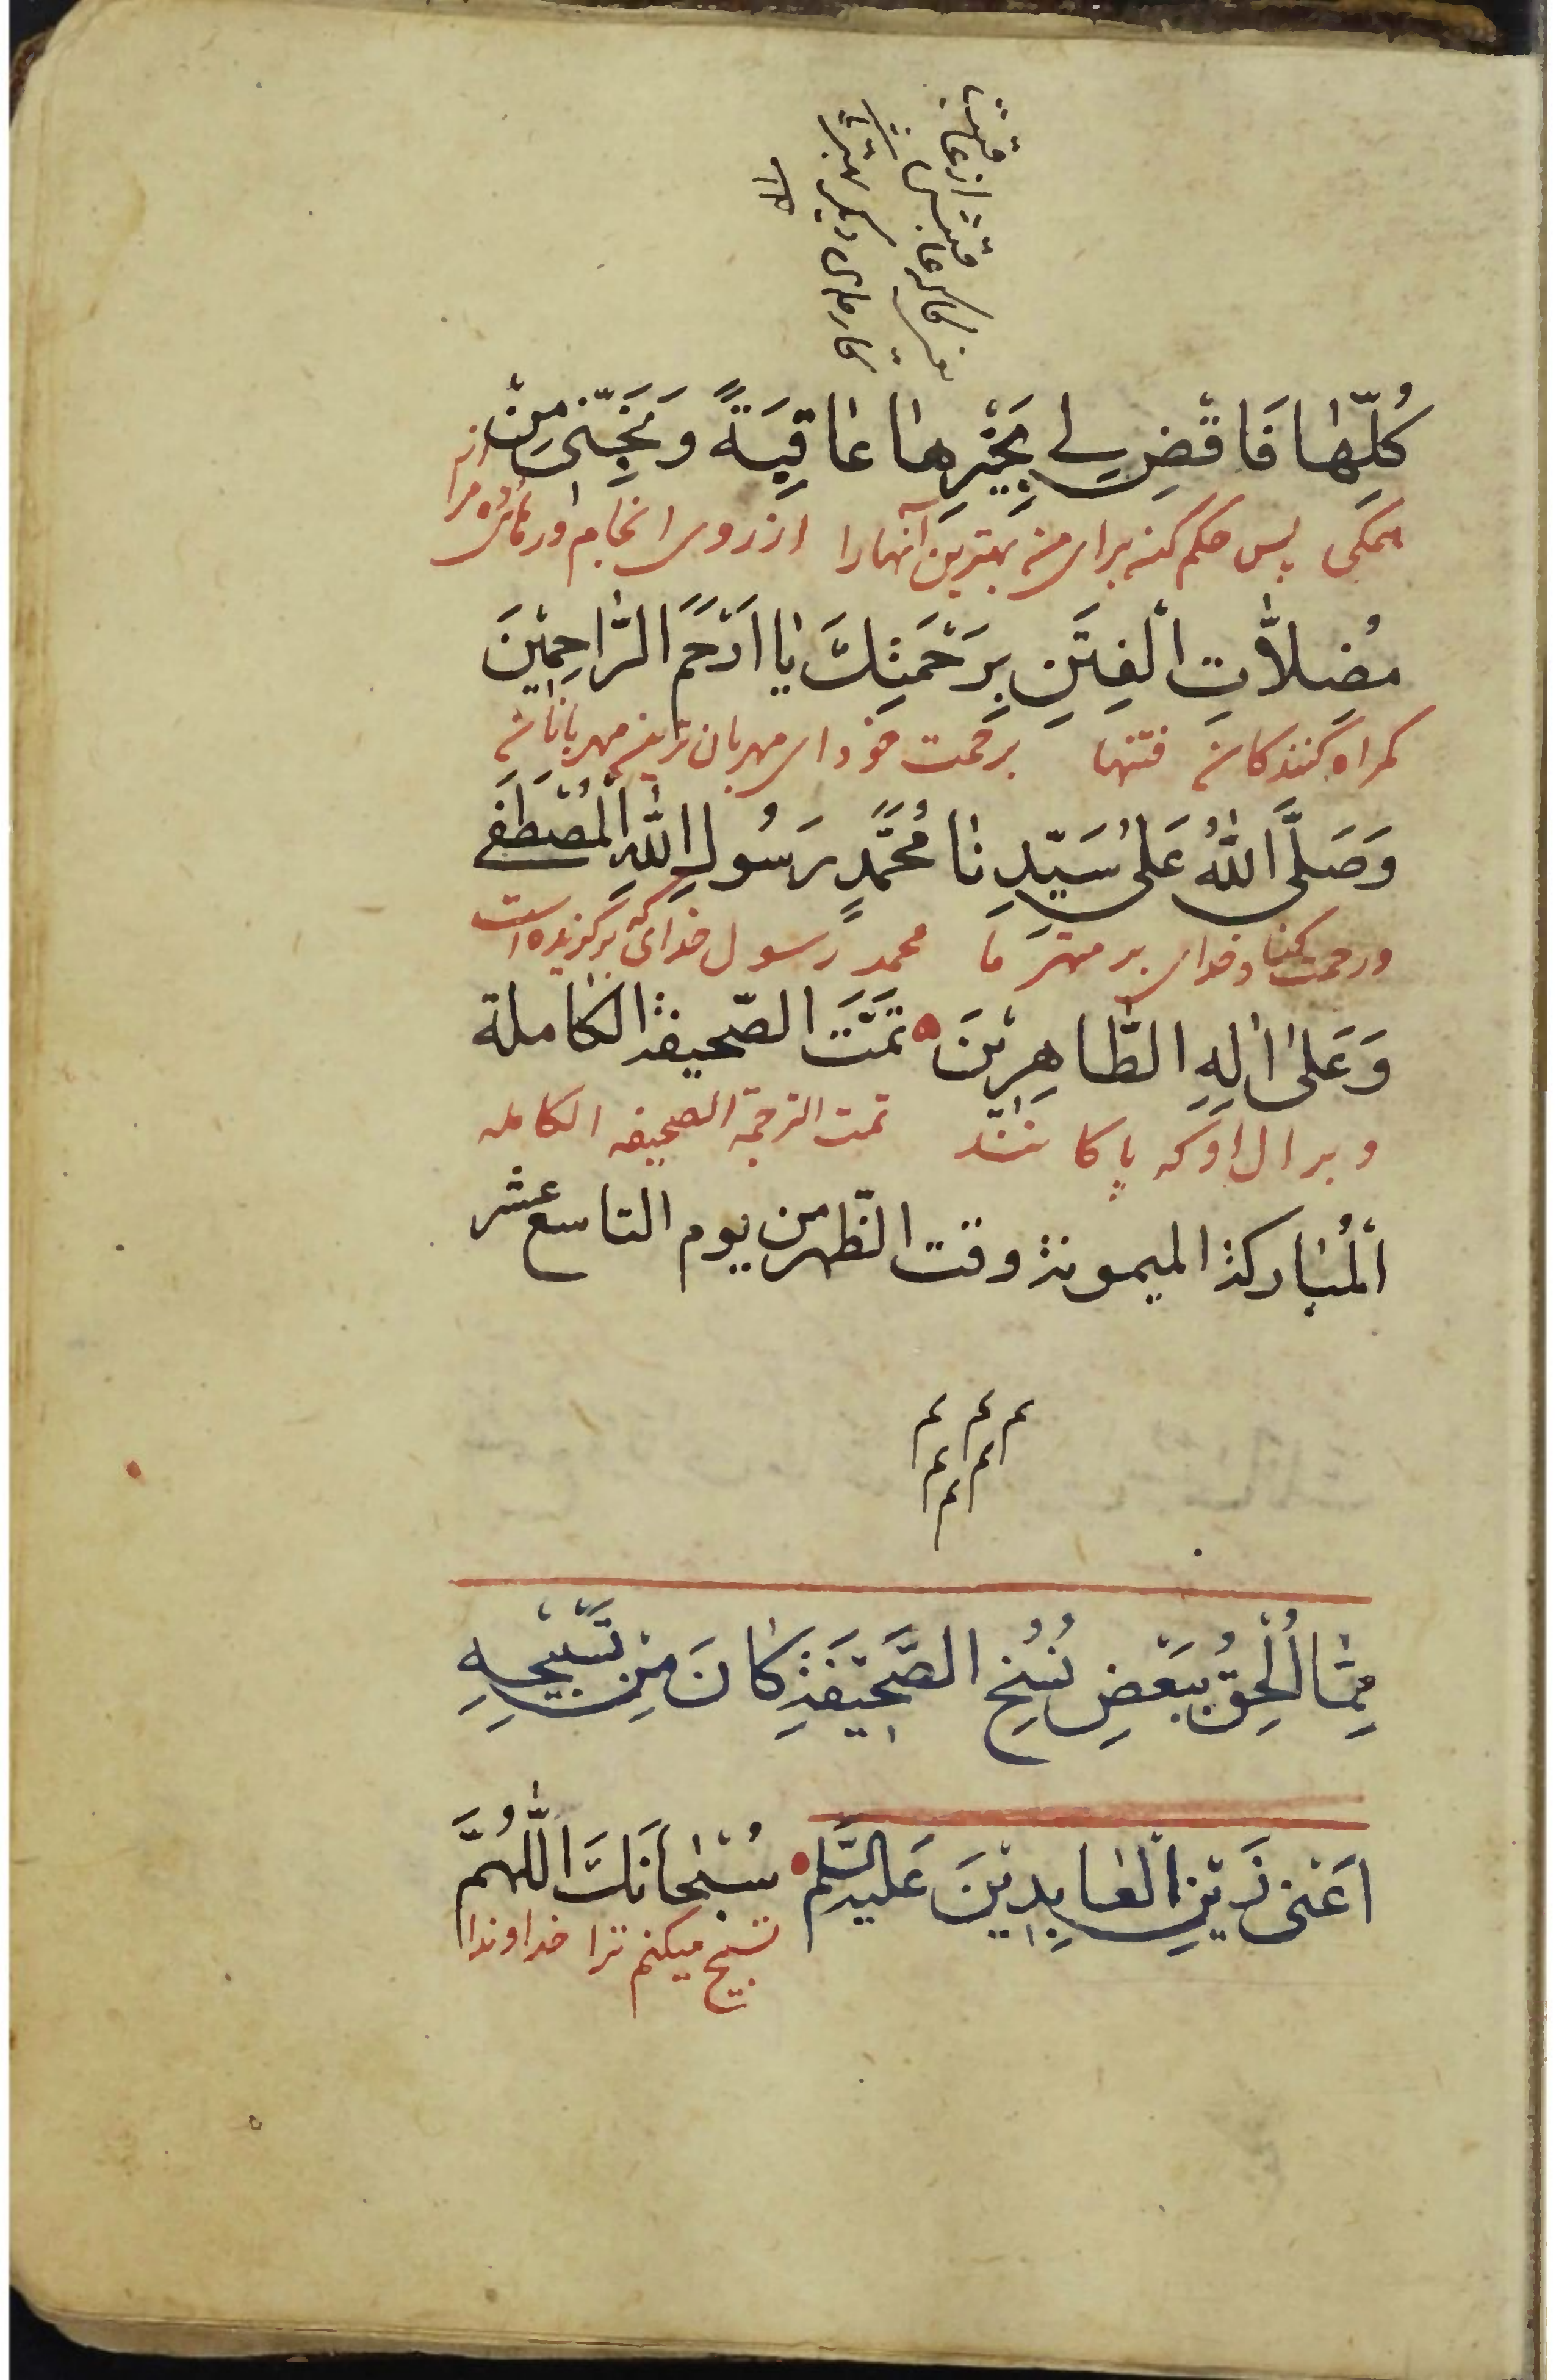 كُلِّهَا فَاقْضِ لِي بِخَيْرِهَا عَاقِبَةً وَ نَجِّنِي مِنْ
همكى پس حكم كن براى من بهترين آنهارا از روى انجام
مُضِلَّاتِ الْفِتَنِ بِرَحْمَتِكَ يَا اَرْحَمَ الرَّاحِمِيْنَ
كمراه كنندكان فتنها برحمت خود اى مهربان ترين مهربانان
وَصَلَّى اللّٰهُ عَلٰى سَيِّدِنَا مُحَمَّدٍ رَسُولِ اللّٰهِ الْمُصْطَفٰى
و رحمت كناد خداى بر مهتر ما محمد رسول خداى كه بركزيده است
وَعَلٰى اٰلِهِ الطَّاهِرِيْنَ تَمَّتَ الصّحيفة الكاملة
و بر ال او كه پاكانند تمت الترجمة الصحيفه الكامله
اَلْمُبَاركة الميمونة وقت الظّهر من يوم التاسع عشر
م م م
م م
م
مِمَّا اُلْحِقُ بِبَعْضِ نُسَخِ الصَّحِيْفَةِ كَانَ مِنْ تَسْبِيْحِهِ
اَعْنِى زَيْنِ الْعَابِدِيْنَ عَلَيْهِ السَّلم سُبْحَانَكَ اللّٰهُمَّ
تسبيح ميكنم ترا خداوندا